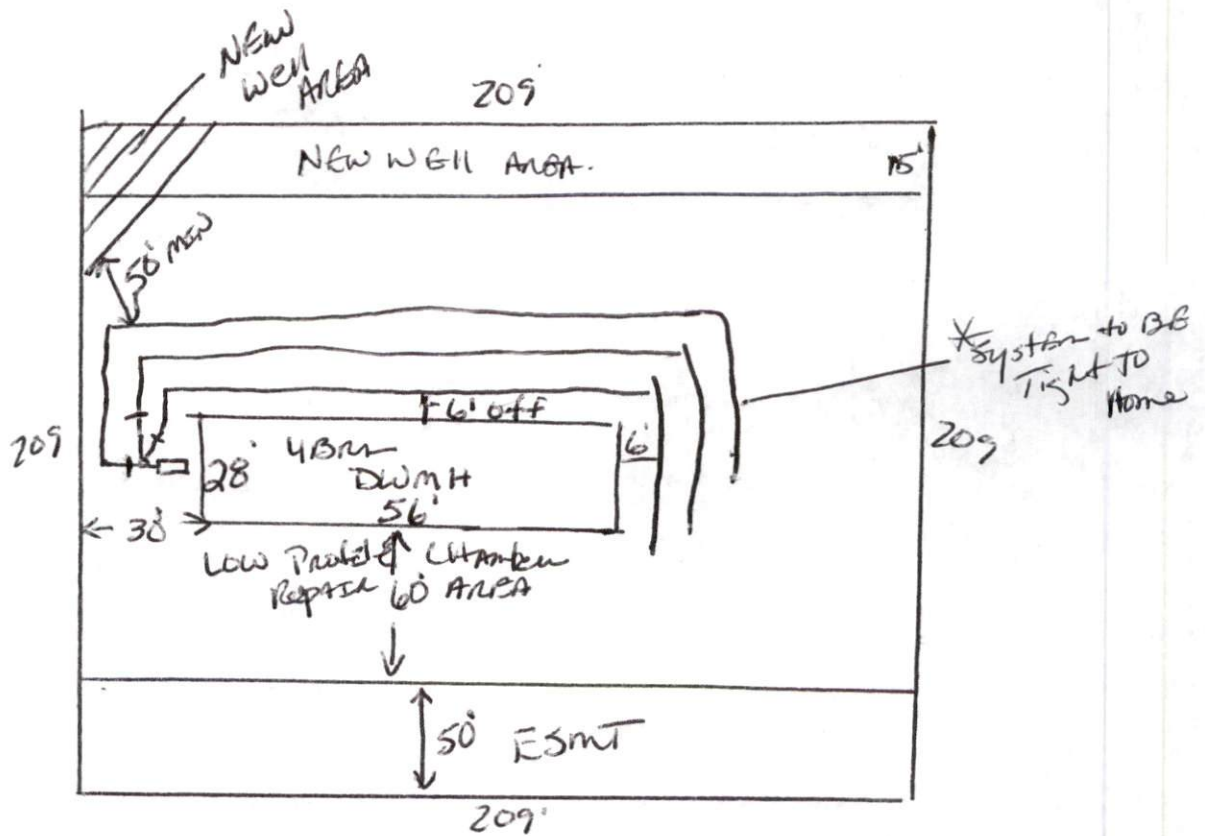 NEW
WELL
AREA
209'
NEW WELL AREA.
15'
50' MIN
*System to BE
Tight to
Home
6' off
209
28'
4BRM
DWMH
56'
6'
209
30'
Low Profile Chamber
Repair 60' AREA
50' ESMT
209'